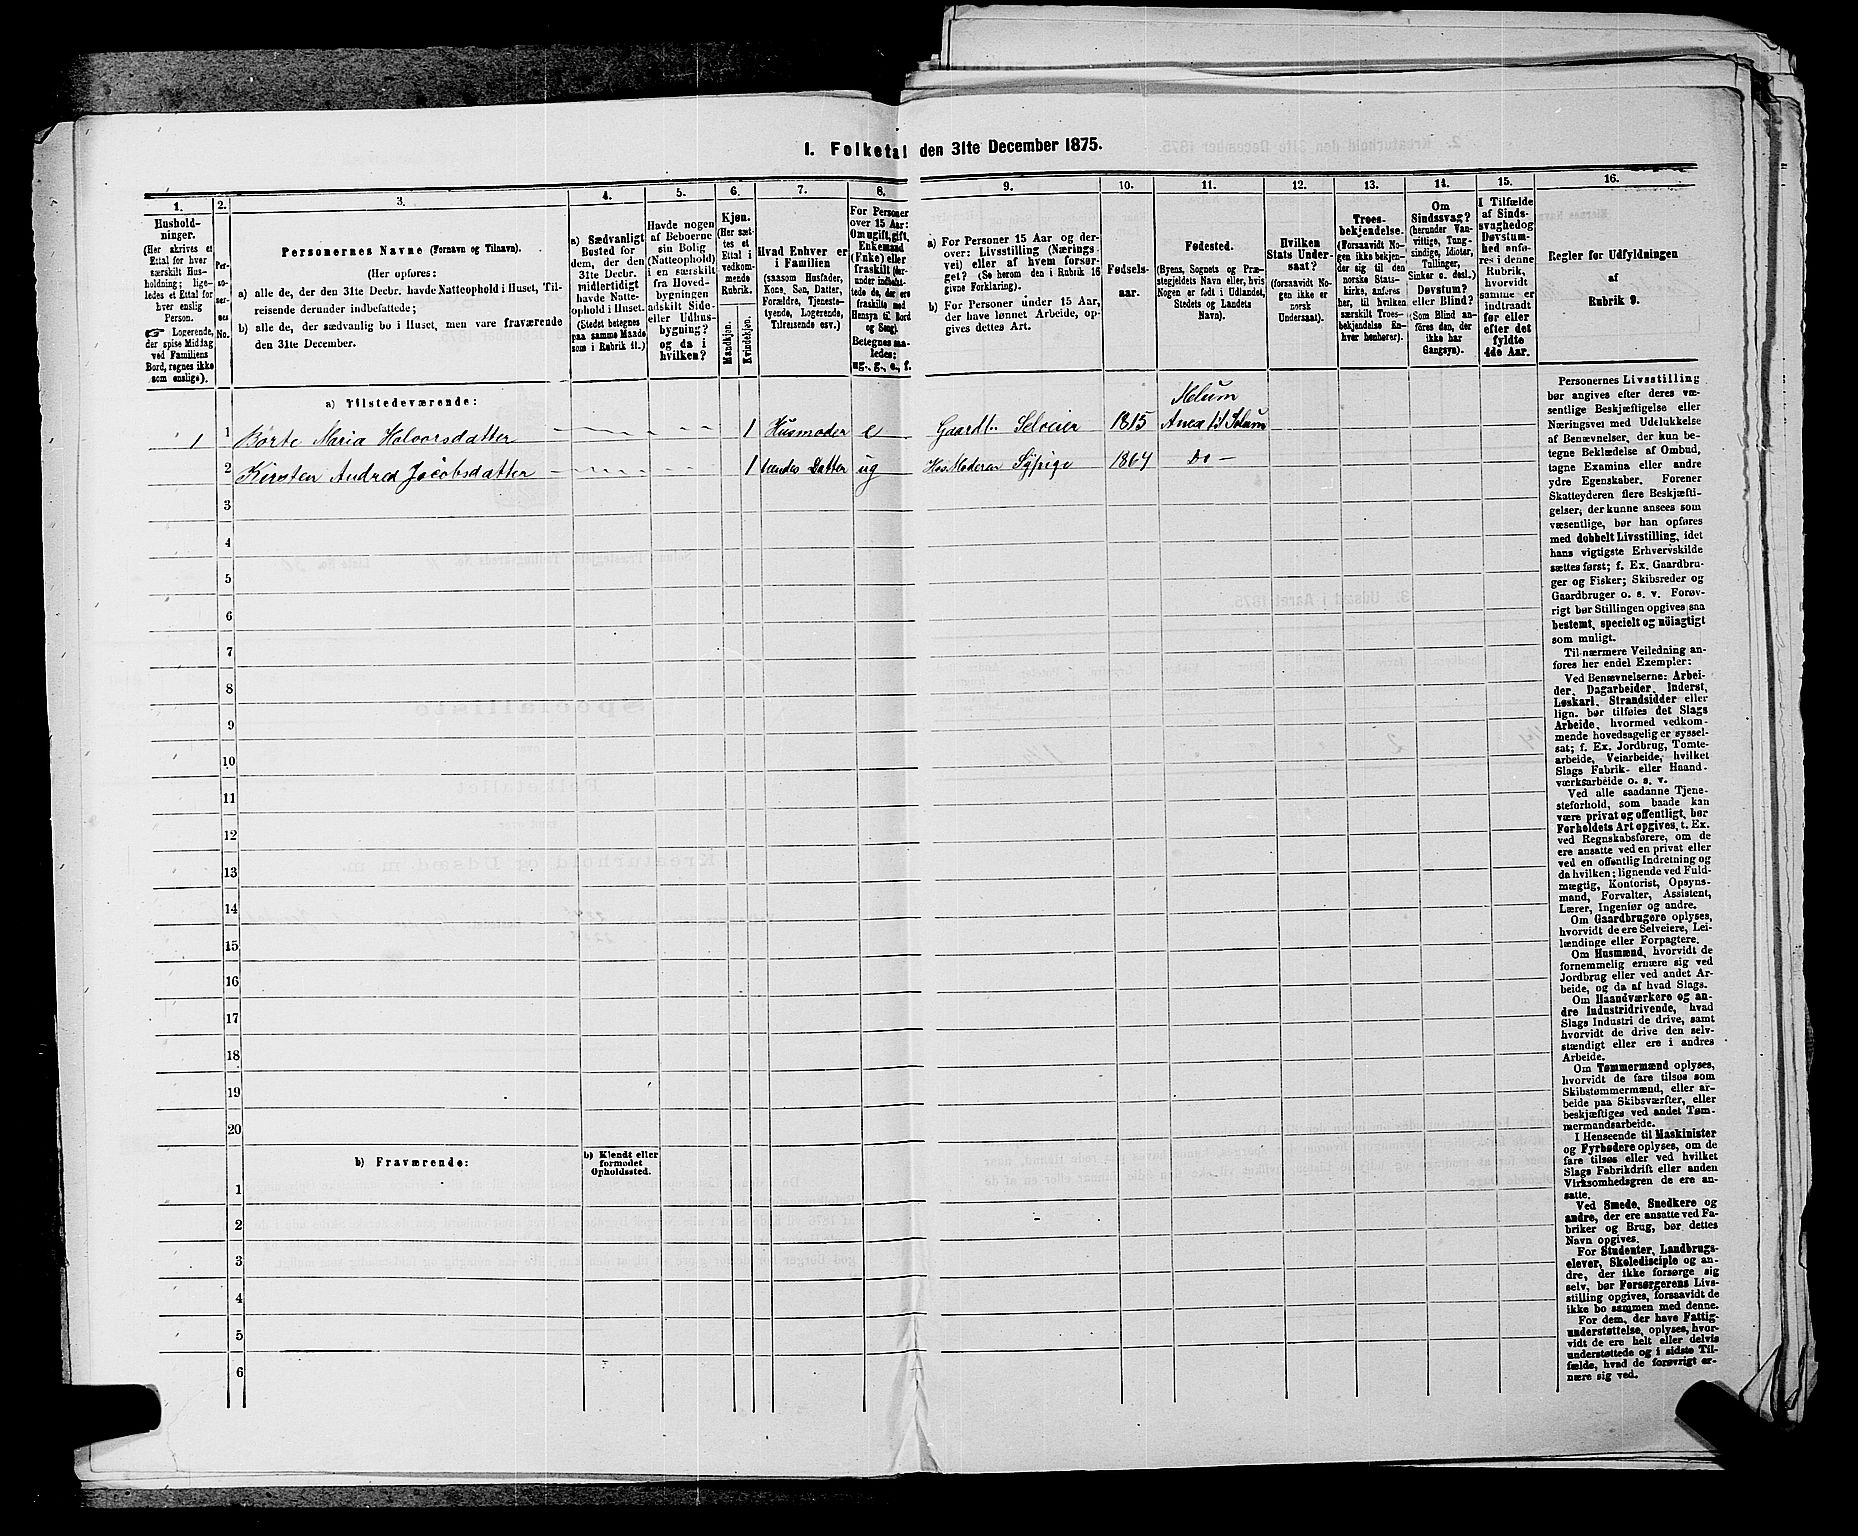 1. Folketal den 31te December 1875.
1.
2.
3.
4.
5.
6.
7.
8.
9.
10.
11.
12.
13.
14.
15.
16.
Hushold-
ninger.
(Her skrives et
Ettal for hver
særskilt Hus-
holdning; lige-
ledes et Ettal for
hver enslig
Person.
Logerende,
der spise Middag
ved Familiens
Bord, regnes ikke
som enslige).
Per-
so-
ner-
nes
No.
Personernes Navne (Fornavn og Tilnavn).
(Her opføres:
a) alle de, der den 31te Decbr. havde Natteophold i Huset, Til-
reisende derunder indbefattede;
b) alle de, der sædvanlig bo i Huset, men vare fraværende
den 31te December.
a) Sædvanligt
Bosted for
dem, der den
31te Decbr.
midlertidigt
havde Natte-
ophold i Huset.
(Stedet betegnes
paa samme Maade
som i Rubrik 11.)
Havde nogen
af Beboerne
sin Bolig
(Natteophold)
i en særskilt
fra Hoved-
bygningen
adskilt Side-
eller Udhus-
bygning?
og da i
hvilken?
Kjøn.
(Her sæt-
tes et
Ettal i
vedkom-
mende
Rubrik.
Mandkjøn.
Kvindekjøn.
Hvad Enhver er
i Familien
(saasom Husfader,
Kone, Søn, Datter,
Forældre, Tjeneste-
tyende, Logerende,
Tilreisende osv.)
For Personer
over 15 Aar:
Om ugift, gift,
Enkemand
(Enke) eller
fraskilt (her-
under indbefat-
tede de, der ere
fraskilte med
Hensyn til Bord
og Seng).
Betegnes saa-
ledes:
ug., g., e., f.
a) For Personer 15 Aar og der-
over: Livsstilling (Nærings-
vei) eller af hvem forsør-
get? (Se herom den i Rubrik 16
givne Forklaring).
b) For Personer under 15 Aar,
der have lønnet Arbeide, op-
gives dettes Art.
Fødsels-
aar.
Fødested.
(Byens, Sognets og Præ-
stegjeldets Navn eller, hvis
Nogen er født i Udlandet,
Stedets og Landets
Navn).
Hvilken
Stats Under-
saat?
(forsaavidt No-
gen ikke er
norsk
Undersaat).
Troes-
bekjendelse.
(Forsaavidt No-
gen ikke bekjen-
der sig til den
norske Stats-
kirke, anføres
her, til hvilken
særskilt Troes-
bekjendelse En-
hver henhører).
Om
Sindssvag?
(herunder Van-
vittige, Tung-
sindige, Idioter,
Tullinger,
Sinker o. desl.)
Døvstum?
eller Blind?
(Som Blind an-
føres den, der
ikke har
Gangsyn).
I Tilfælde
af Sinds-
svaghed og
Døvstum-
hed anfø-
res i denne
Rubrik,
hvorvidt
samme er
indtraadt
før eller
efter det
fyldte
4de Aar.
Regler for Udfyldningen
af
Rubrik 9.
a) Tilstedeværende:
Melum
1 1 Børte Maria Halvorsdatter 1 Husmoder e Gaardb. Selveier 1815 Anex til Solum
2 Kirsten Andrea Jacobsdatter 1 hendes Datter ug Hos Moderen Sypige 1864 Do -
3
4
5
6
7
8
9
10
11
12
13
14
15
16
17
18
19
20
b) Fraværende:
b) Kjendt eller
formodet
Opholdssted.
1
2
3
4
5
6
Personernes Livsstilling
bør angives efter deres væ-
sentlige Beskjæftigelse eller
Næringsvei med Udelukkelse
af Benævnelser, der kun be-
tegne Beklædelse af Ombud,
tagne Examina eller andre
ydre Egenskaber. Forener
Skatteyderen flere Beskjæfti-
gelser, der kunne ansees som
væsentlige, bør han opføres
med dobbelt Livsstilling, idet
hans vigtigste Erhvervskilde
sættes først; f. Ex. Gaardbru-
ger og Fisker; Skibsreder og
Gaardbruger o. s. v. Forøv-
rigt bør Stillingen opgives saa
bestemt, specielt og nøiagtigt
som muligt.
Til nærmere Veiledning an-
føres her endel Exempler:
Ved Benævnelserne: Arbei-
der, Dagarbeider, Inderst,
Løskarl, Strandsidder eller
lign. bør tilføies det Slags
Arbeide, hvormed vedkom-
mende hovedsagelig er syssel-
sat; f. Ex. Jordbrug, Tomte-
arbeide, Veiarbeide, hvilket
Slags Fabrik- eller Haand-
værksarbeide o. s. v.
Ved alle saadanne Tjene-
steforhold, som baade kan
være privat og offentligt, bør
Forholdets Art opgives, t. Ex.
ved Regnskabsførere, om de
ere ansatte ved en privat eller
ved en offentlig Indretning og
da hvilken; lignende ved Fuld-
mægtig, Kontorist, Opsyns-
mand, Forvalter, Assistent,
Lærer, Ingeniør og andre.
Om Gaardbrugere oplyses,
hvorvidt de ere Selveiere, Lei-
lændinge eller Forpagtere.
Om Husmænd, hvorvidt de
fornemmelig ernære sig ved
Jordbrug eller ved andet Ar-
beide, og da af hvad Slags.
Om Haandværkere og an-
dre Industridrivende, hvad
Slags Industri de drive, samt
hvorvidt de drive den selv-
stændigt eller ere i andres
Arbeide.
Om Tømmermænd oplyses,
hvorvidt de fare tilsøs som
Skibstømmermænd, eller ar-
beide paa Skibsværfter, eller
beskjæftiges ved andet Tøm-
mermandsarbeide.
I Henseende til Maskinister
og Fyrbødere oplyses, om de
fare tilsøs eller ved hvilket
Slags Fabrikdrift eller anden
Virksomhedsgren de ere an-
satte.
Ved Smede, Snedkere og
andre, der ere ansatte ved Fa-
briker og Brug, bør dettes
Navn opgives.
For Studenter, Landbrugs-
elever, Skoledisciple og an-
dre, der ikke forsørge sig
selv, bør Forsørgerens Livs-
stilling opgives, forsaavidt de
ikke bo sammen med denne.
For dem, der have Fattig-
understøttelse, oplyses, hvor-
vidt de ere helt eller delvis
understøttede og i sidste Til-
fælde, hvad de forøvrigt er-
nære sig ved.